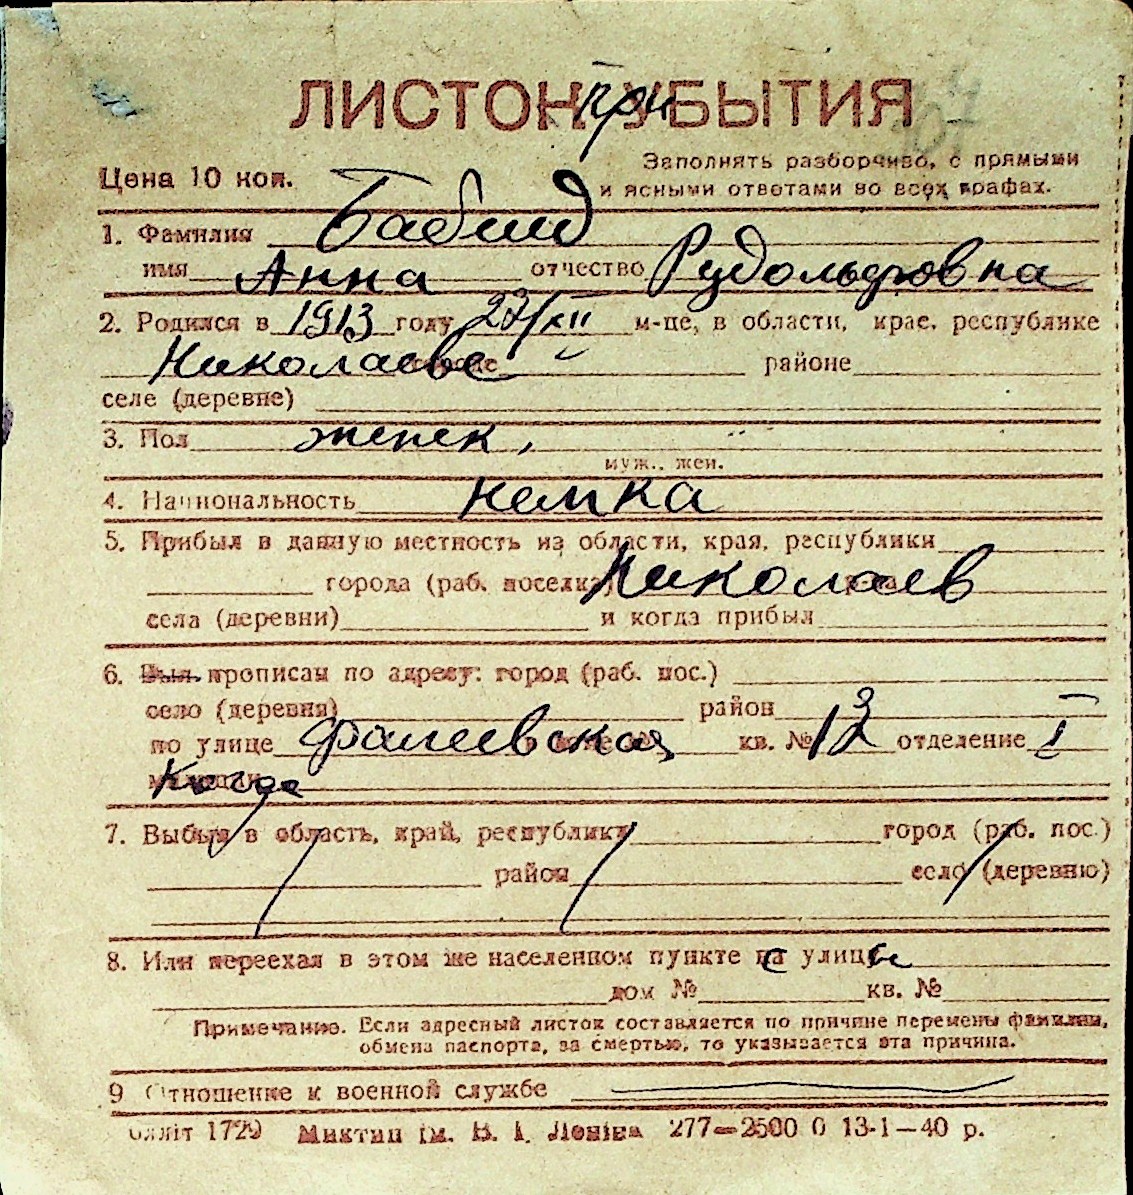 ЛИСТОК УБЫТИЯ
при
Цена 10 коп.
Заполнять разборчиво, с прямыми
и ясными ответами во всех графах.
1. Фамилия
имя Анна отчество Рудольфовна
2. Родился в 1913 году 27/XII м-це, в области, крае, республике
Николаеве районе
селе (деревне)
3. Пол женск.
муж., жен.
4. Национальность немка
5. Прибыл в данную местность из области, края, республики
города (раб. поселка) Николаев
села (деревни) и когда прибыл
6. Был прописан по адресу: город (раб. пос.)
село (деревня) район
по улице Фалеевская кв. № 13 отделение I
Когда
7. Выбыл в область, край, республику город (раб. пос.)
район село (деревню)
8. Или переехал в этом же населенном пункте с улицы
дом № кв. №
Примечание. Если адресный листок составляется по причине перемены фамилии,
обмена паспорта, за смертью, то указывается эта причина.
9 Отношение к военной службе
1729 ім. В. І. Леніна 277—2500 0 13-1—40 р.